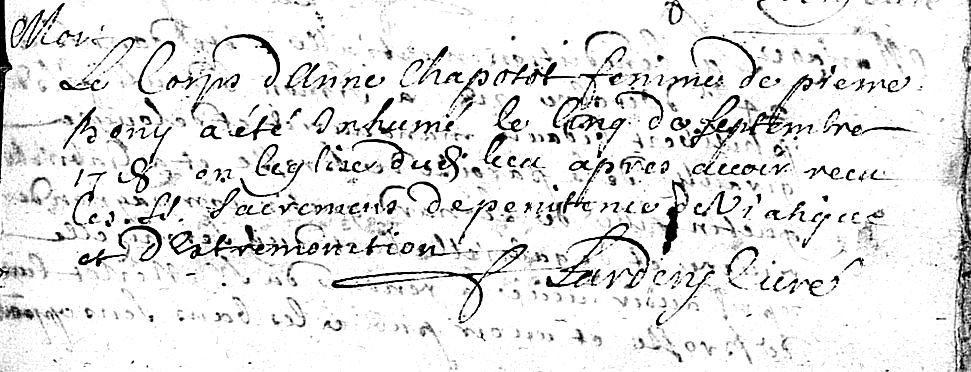 Mor
Le Corps d'Anne Chapotot femme de pierre
a été Inhumé le cinq de septembre
1718 en l'eglise dud lieu apres avoir receu
les SS. Sacremens de penitence de Viatique
et D'extremonction
Curé